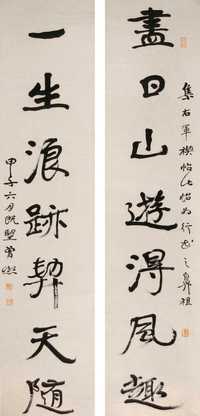 集右軍禊帖此帖為行書之鼻祖
盡日山遊得風趣
一生浪跡契天隨
甲子六月既望曾熙